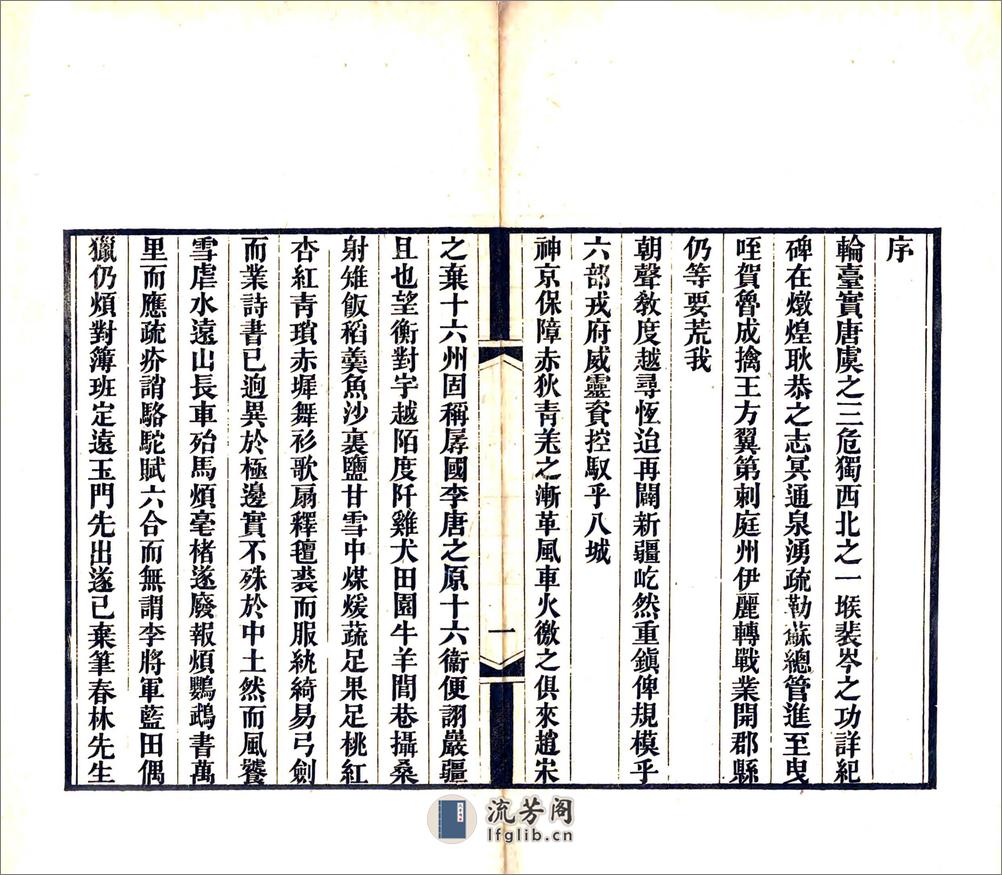 序
輪臺實唐虞之三危獨西北之一堠裴岑之功詳紀
碑在燉煌耿恭之志冥通泉湧疏勒蘇總管進至曳
咥賀魯成擒王方翼第刺庭州伊麗轉戰業開郡縣
仍等要荒我
朝聲敎度越尋恆迨再闢新疆屹然重鎭俾規模乎
六部戎府威靈資控馭乎八城
神京保障赤狄靑羌之漸革風車火徼之俱來趙宋
一
之棄十六州固稱孱國李唐之原十六衞便詡嚴疆
且也望衡對宇越陌度阡雞犬田園牛羊閭巷攝桑
射雉飯稻羹魚沙裏鹽甘雪中煤煖蔬足果足桃紅
杏紅靑瑣赤墀舞衫歌扇釋氊裘而服紈綺易弓劍
而業詩書已逈異於極邊實不殊於中土然而風饕
雪虐水遠山長車殆馬煩毫楮遂廢報煩鸚鵡書萬
里而應疏疥謂駱駝賦六合而無謂李將軍藍田偶
獵仍煩對簿班定遠玉門先出遂已棄筆春林先生
流芳阁
lfglib.cn